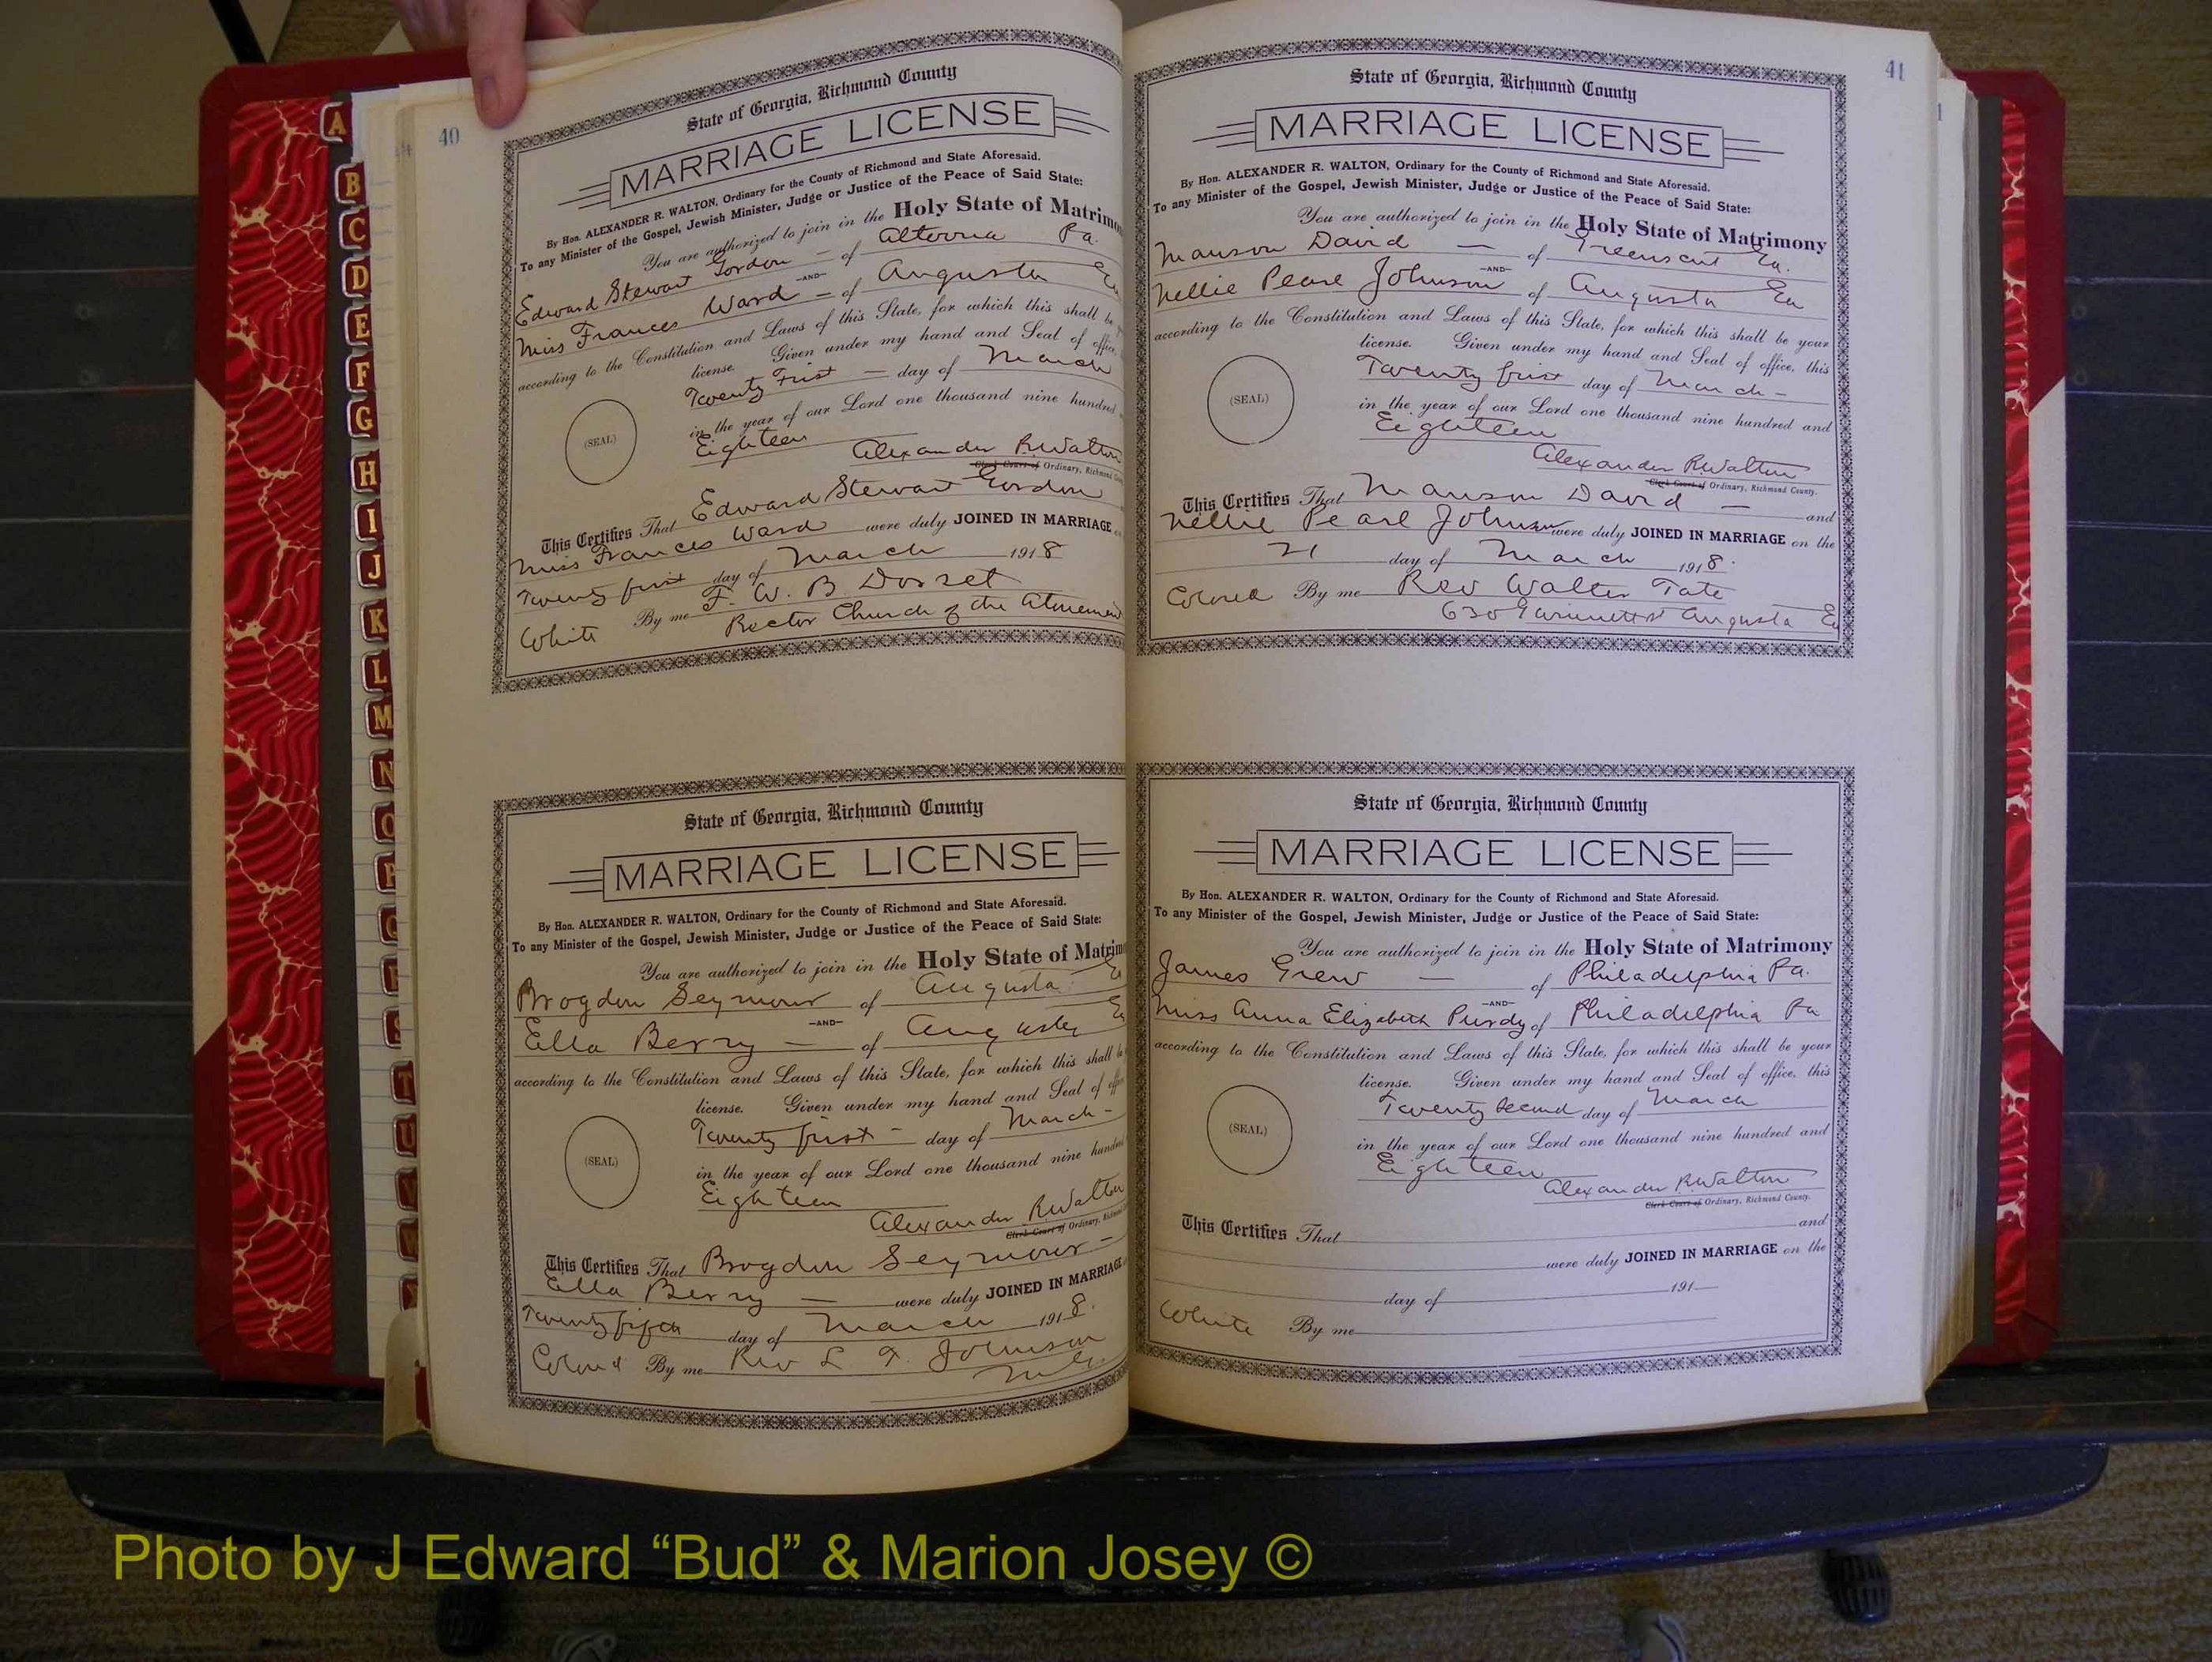 40
State of Georgia, Richmond County
MARRIAGE LICENSE
By Hon. ALEXANDER R. WALTON, Ordinary for the County of Richmond and State Aforesaid.
To any Minister of the Gospel, Jewish Minister, Judge or Justice of the Peace of Said State:
You are authorized to join in the Holy State of Matrimo
Edward Stewart Gordon — of Altoona Pa.
—AND—
Miss Frances Ward — of Augusta Ga
according to the Constitution and Laws of this State, for which this shall be
license. Given under my hand and Seal of office,
(SEAL)
Twenty First — day of March
in the year of our Lord one thousand nine hundred
Eighteen
Alexander R. Walton
Clerk Court of Ordinary, Richmond
This Certifies That Edward Stewart Gordon
Miss Frances Ward were duly JOINED IN MARRIAGE
Twenty first day of March 1918
White By me F. W. B Dorset
Rector Church of the Atonement
State of Georgia, Richmond County
MARRIAGE LICENSE
By Hon. ALEXANDER R. WALTON, Ordinary for the County of Richmond and State Aforesaid.
To any Minister of the Gospel, Jewish Minister, Judge or Justice of the Peace of Said State:
You are authorized to join in the Holy State of Matrim
Brogdon Seymour of Augusta Ga
—AND—
Ella Berry — of Augusta Ga
according to the Constitution and Laws of this State, for which this shall be
license. Given under my hand and Seal of
(SEAL)
Twenty first — day of March —
in the year of our Lord one thousand nine hundred
Eighteen
Alexander R. Walton
Clerk Court of Ordinary,
This Certifies That Brogdon Seymour —
Ella Berry — were duly JOINED IN MARRIAGE
Twenty fifth day of March 1918.
Colored By me Rev L. T. Johnson
M.G.
41
State of Georgia, Richmond County
MARRIAGE LICENSE
By Hon. ALEXANDER R. WALTON, Ordinary for the County of Richmond and State Aforesaid.
To any Minister of the Gospel, Jewish Minister, Judge or Justice of the Peace of Said State:
You are authorized to join in the Holy State of Matrimony
Manson David — of Ga.
—AND—
Nellie Pearl Johnson of Augusta Ga
according to the Constitution and Laws of this State, for which this shall be your
license. Given under my hand and Seal of office, this
(SEAL)
Twenty first day of March —
in the year of our Lord one thousand nine hundred and
Eighteen
Alexander R. Walton
Clerk Court of Ordinary, Richmond County.
This Certifies That Manson David — and
Nellie Pearl Johnson were duly JOINED IN MARRIAGE on the
21 day of March 1918.
Colored By me Rev Walter Tate
630 Augusta Ga
State of Georgia, Richmond County
MARRIAGE LICENSE
By Hon. ALEXANDER R. WALTON, Ordinary for the County of Richmond and State Aforesaid.
To any Minister of the Gospel, Jewish Minister, Judge or Justice of the Peace of Said State:
You are authorized to join in the Holy State of Matrimony
James Grew — of Philadelphia Pa.
—AND—
Miss Anna Elizabeth Purdy of Philadelphia Pa
according to the Constitution and Laws of this State, for which this shall be your
license. Given under my hand and Seal of office, this
(SEAL)
Twenty Second day of March
in the year of our Lord one thousand nine hundred and
Eighteen
Alexander R. Walton
Clerk Court of Ordinary, Richmond County.
This Certifies That and
were duly JOINED IN MARRIAGE on the
day of 191
White By me
A
B
C
D
E
F
G
H
I
J
K
L
M
N
O
P
Q
R
S
T
U
V
W
Photo by J Edward “Bud” & Marion Josey ©